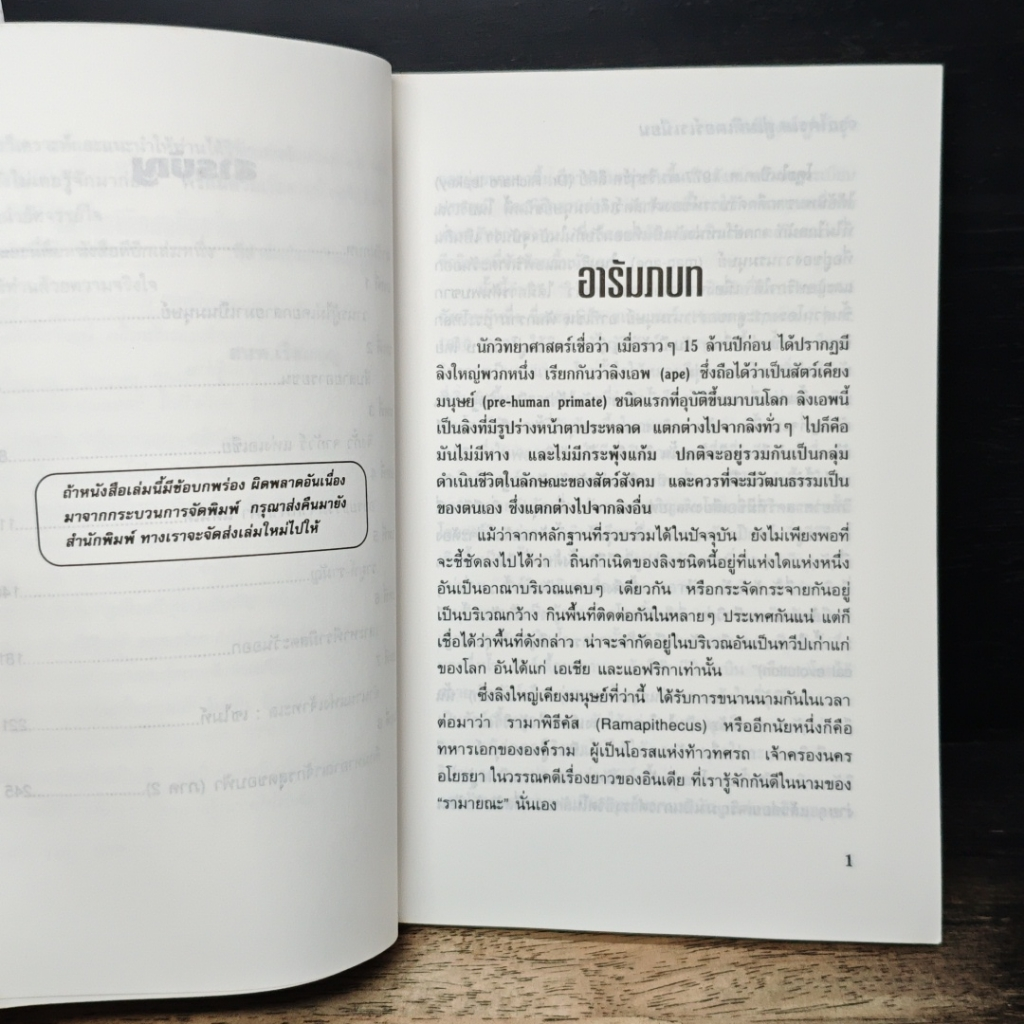 ถ้าหนังสือเล่มนี้มีข้อบกพร่อง ผิดพลาดอันเนื่อง
มาจากกระบวนการจัดพิมพ์ กรุณาส่งคืนมายัง
สำนักพิมพ์ ทางเราจะจัดส่งเล่มใหม่ไปให้
อารัมภบท
นักวิทยาศาสตร์เชื่อว่า เมื่อราวๆ 15 ล้านปีก่อน ได้ปรากฏมี
ลิงใหญ่พวกหนึ่ง เรียกกันว่าลิงเอพ (ape) ซึ่งถือได้ว่าเป็นสัตว์เคียง
มนุษย์ (pre-human primate) ชนิดแรกที่อุบัติขึ้นมาบนโลก ลิงเอพนี้
เป็นลิงที่มีรูปร่างหน้าตาประหลาด แตกต่างไปจากลิงทั่วๆ ไปก็คือ
มันไม่มีหาง และไม่มีกระพุ้งแก้ม ปกติจะอยู่รวมกันเป็นกลุ่ม
ดำเนินชีวิตในลักษณะของสัตว์สังคม และควรที่จะมีวัฒนธรรมเป็น
ของตนเอง ซึ่งแตกต่างไปจากลิงอื่น
แม้ว่าจากหลักฐานที่รวบรวมได้ในปัจจุบัน ยังไม่เพียงพอที่
จะชี้ชัดลงไปได้ว่า ถิ่นกำเนิดของลิงชนิดนี้อยู่ที่แห่งใดแห่งหนึ่ง
อันเป็นอาณาบริเวณแคบๆ เดียวกัน หรือกระจัดกระจายกันอยู่
เป็นบริเวณกว้าง กินพื้นที่ติดต่อกันในหลายๆ ประเทศกันแน่ แต่ก็
เชื่อได้ว่าพื้นที่ดังกล่าว น่าจะจำกัดอยู่ในบริเวณอันเป็นทวีปเก่าแก่
ของโลก อันได้แก่ เอเชีย และแอฟริกาเท่านั้น
ซึ่งลิงใหญ่เคียงมนุษย์ที่ว่านี้ ได้รับการขนานนามกันในเวลา
ต่อมาว่า รามาพิธีคัส (Ramapithecus) หรืออีกนัยหนึ่งก็คือ
ทหารเอกขององค์ราม ผู้เป็นโอรสแห่งท้าวทศรถ เจ้าครองนคร
อโยธยา ในวรรณคดีเรื่องยาวของอินเดีย ที่เรารู้จักกันดีในนามของ
“รามายณะ” นั่นเอง
1